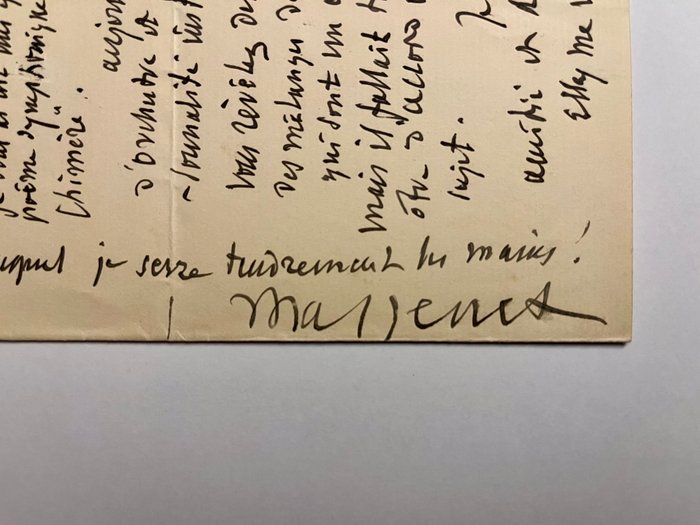 poème symphonique
Chimère. aujour
d'orchestre et
-sonnalité inst
vous des
des mélanges de
qui sont un
mais il fallait
être d'accord
sujet.
amitié et
me
je serre tendrement les mains!
Massenet